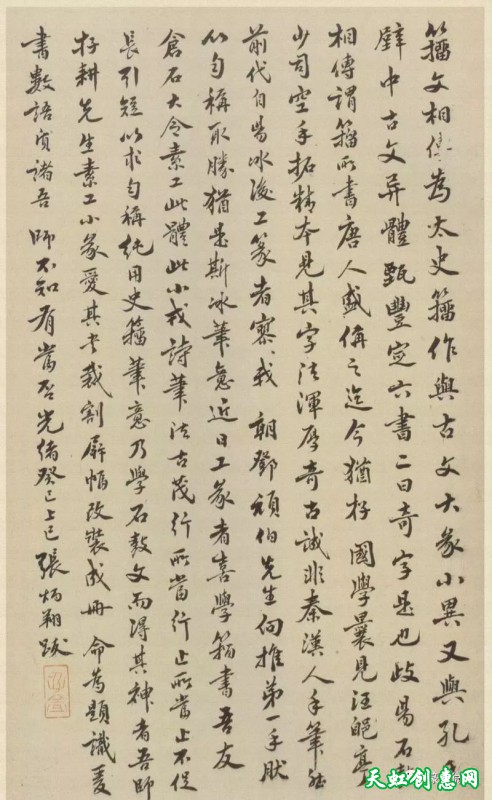 籀文相傳為太史籀作與古文大篆小異又與孔氏
壁中古文異體甄豐定六書二曰奇字是也歧陽石鼓
相傳謂籀所書唐人盛偁之迄今猶存國學曩見汪
少司空手拓精本見其字法渾厚奇古誠非秦漢人手筆
前代自陽冰後工篆者寥寥我朝鄧頑伯先生向推第一手肰
以勻稱取勝猶是斯冰筆意近日工篆者喜學籀書吾友
倉石大令素工此體此小戎詩筆法古茂行所當行止所當止不促
長引短以求勻稱純用史籀筆意乃學石鼓文而得其神者吾師
存耕先生素工小篆愛其書裁割屏幅改裝成冊命為題識爰
書數語質諸吾師不知有當否光緒癸巳上巳張炳翔跋
天虹创意网